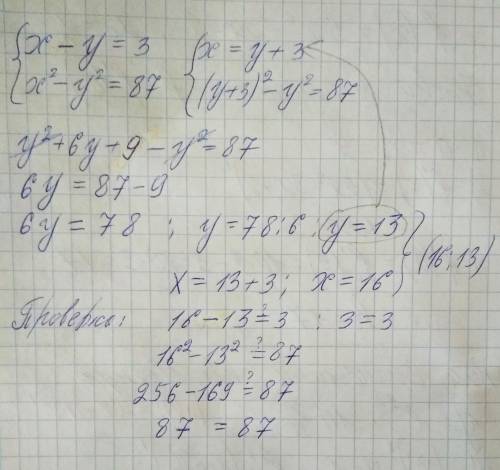 { x - y = 3 { x = y + 3
x² - y² = 87 (y+3)² - y² = 87
y² + 6y + 9 - y² = 87
6y = 87 - 9
6y = 78 ; y = 78 : 6 ; y = 13 } (16; 13)
x = 13 + 3 ; x = 16
Проверка: 16 - 13 ≟ 3 : 3 = 3
16² - 13² ≟ 87
256 - 169 ≟ 87
87 = 87